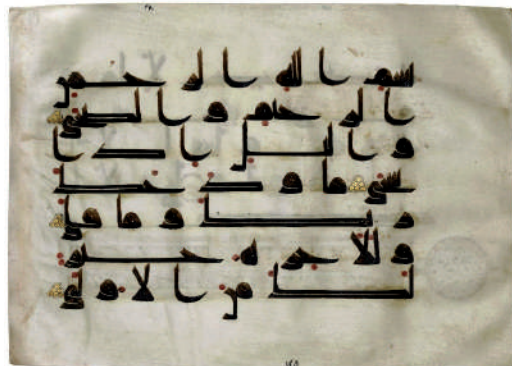 بسم الله الرحمن
الرحيم والضحى
واليل اذا
سجى ما ودعك
ربك وما قلى
وللاخره خير
لك من الاولى